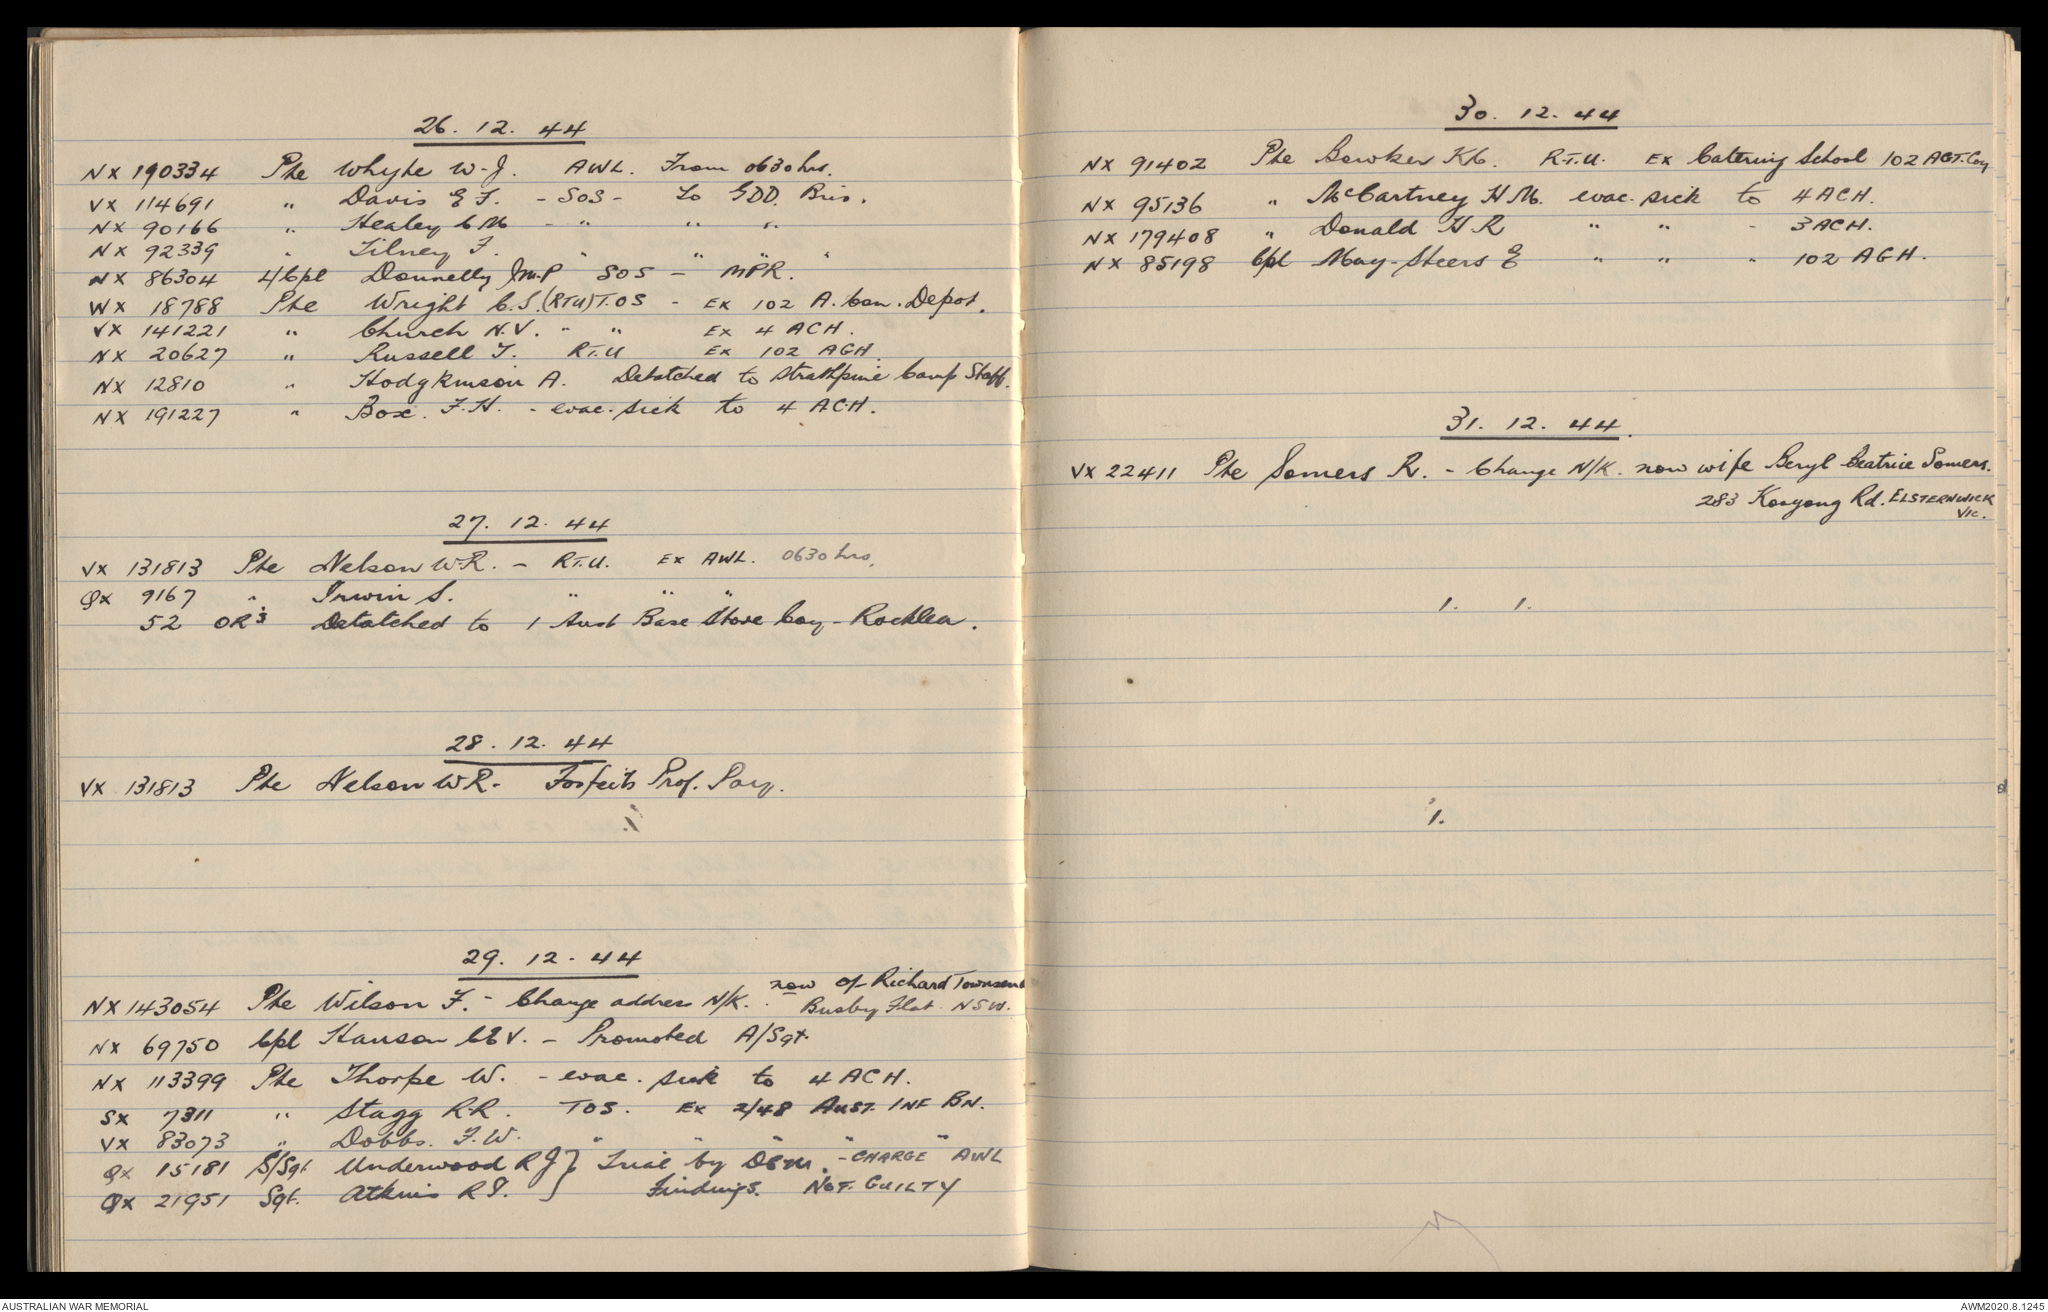 26. 12. 44
NX 190334 Pte Whyte W.J. AWL. From 0630 hrs.
VX 114691 " Davis E F. - SOS - To GDD. Bris.
NX 90166 " Healey C M - " " "
NX 92339 " Tilney F. " " " "
NX 86304 L/Cpl Donnelly J M.P SOS - MPR.
WX 18788 Pte Wright C.S. (RTU) T.OS - Ex 102 A. Con. Depot.
VX 141221 " Church N.V. " " Ex 4 ACH.
NX 20627 " Russell J. R.T.U Ex 102 AGH.
NX 12810 " Hodgkinson A. Detatched to Strathpine Camp Staff.
NX 191227 " Box. F.H. - evac. sick to 4 ACH.
27. 12. 44
VX 131813 Pte Nelson W.R. - R.T.U. Ex AWL. 0630 hrs.
QX 9167 " Irwin S. " " "
52 OR's Detatched to 1 Aust Base Store Coy - Rocklea.
28. 12. 44
VX 131813 Pte Nelson W R - Forfeits Prof. Pay.
1.
29. 12. 44
NX 143054 Pte Wilson F. - Change address N/K. now of Richard Townsend
Busby Flat. NSW.
NX 69750 Cpl Hanson V. - Promoted A/Sgt.
NX 113399 Pte Thorpe W. - evac. sick to 4 ACH.
SX 7311 " Stagg R.R. TOS. Ex 2/48 Aust. INF BN.
VX 83073 " Dobbs. F.W. " " " " "
QX 15181 S/Sgt Underwood R J } Trial by DCM. - CHARGE AWL
QX 21951 Sgt. Atkins R J. } Findings. NOT. GUILTY
30. 12. 44
NX 91402 Pte Bowker R.T.U. Ex Catering School 102 AGT. Coy
NX 95136 " McCartney H M. evac. sick to 4 ACH.
NX 179408 " Donald H R " " - 3 ACH.
NX 85198 Cpl May-Steers E " " " 102 AGH.
31. 12. 44.
VX 22411 Pte Somers R. - Change N/K. now wife Beryl Beatrice Somers.
283 Kooyong Rd. ELSTERNWICK
VIC.
1. 1.
1.
AUSTRALIAN WAR MEMORIAL
AWM2020.8.1245